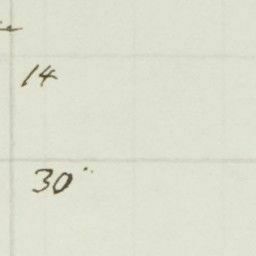 14
30"